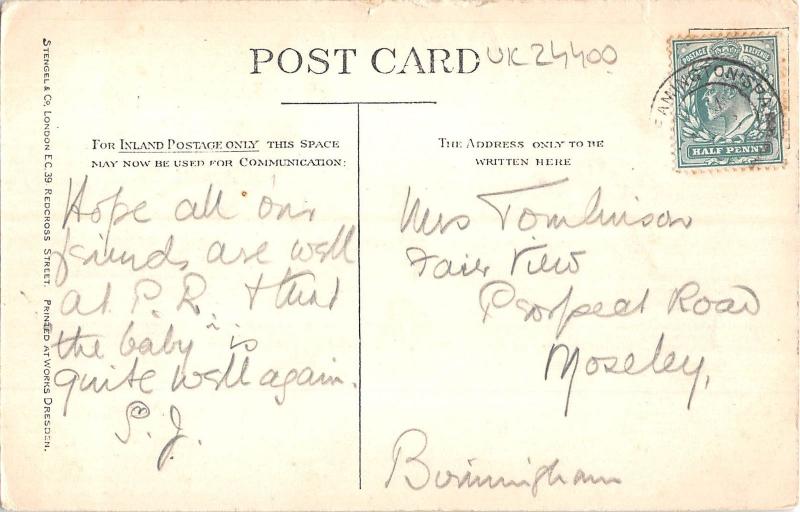 POST CARD
UK24400
POSTAGE & REVENUE
HALF PENNY
STENGEL & Co, LONDON E.C. 39 REDCROSS STREET. PRINTED AT WORKS DRESDEN.
FOR INLAND POSTAGE ONLY THIS SPACE
MAY NOW BE USED FOR COMMUNICATION:
THE ADDRESS ONLY TO BE
WRITTEN HERE
Hope all our
friends are well
at P.R. & that
the baby is
quite well again.
S.J.
Mrs Tomlinson
Fair View
Prospect Road
Moseley,
Birmingham